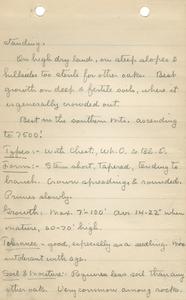 standing.
On high dry land, on steep slopes &
hillsides too sterile for other oaks. Best
growth on deep & fertile soils, where it
is generally crowded out.
Best in the southern mts. ascending
to 4500'.
Types:- With Chest., W.O. & Bl.O.
Form:- Stem short, tapered, tending to
branch. Crown spreading & rounded.
Prunes slowly.
Growth: Max. 7'-100' Av. 14-22" when
mature, 60-70' high.
Tolerance:- good, especially as a seedling. More
intolerant with age.
Soil & Moisture:- Requires less soil than any
other oak. Very common among rocks.